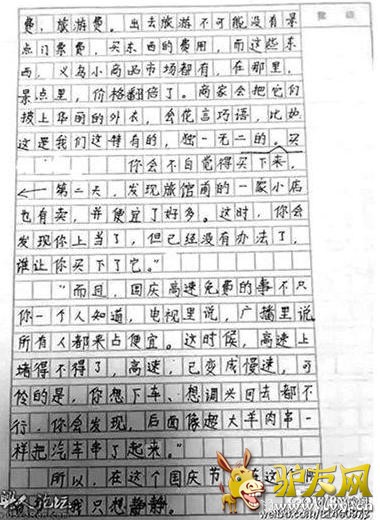 费，旅游费。出去旅游不可能没有景
点门票费，买东西的费用，而这些东
西，义乌小商品市场都有，在那里，
景点里，价格翻倍了。商家会把它们
披上华丽的外衣，会花言巧语，比如
这是我们这特有的，独一无二的。买
你会不自觉得买下来，
←第二天，发现旅馆前的一家小店
也有卖，并便宜了好多。这时，你会
发现你上当了，但已经没有办法了，
谁让你买下了它。”
“而且，国庆高速免费的事不只
你一个人知道，电视里说，广播里说
所有人都来占便宜。这时候，高速上
堵得不得了，高速，已变成慢速，可
怜的是，你想下车、想调头回去都不
行，你会发现，后面像超大羊肉串一
样把汽车串了起来。”
所以，在这个国庆节，在这
我只想静静。
驴友网
论坛